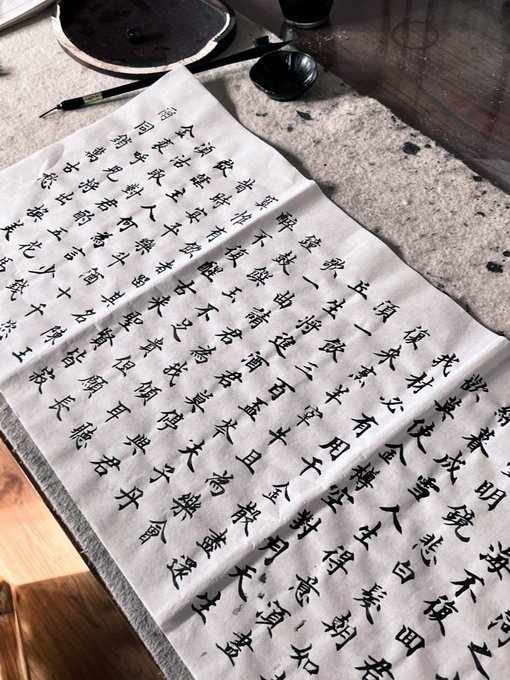 河之
海不復回君
明鏡悲白髮朝如
絲暮成雪人生得意須盡
歡莫使金樽空對月天生
我材必有用千金散盡還
復來烹羊宰牛且為樂會
須一飲三百盃岑夫子丹
丘生將進酒盃莫停與君
歌一曲請君為我傾耳聽
鐘鼓饌玉不足貴但願長
醉不復醒古來聖賢皆寂
寞惟有飲者留其名陳王
昔時宴平樂斗酒十千恣
歡謔主人何為言少錢
須沽取對君酌五花馬
金裘呼兒將出換美
爾同銷萬古愁